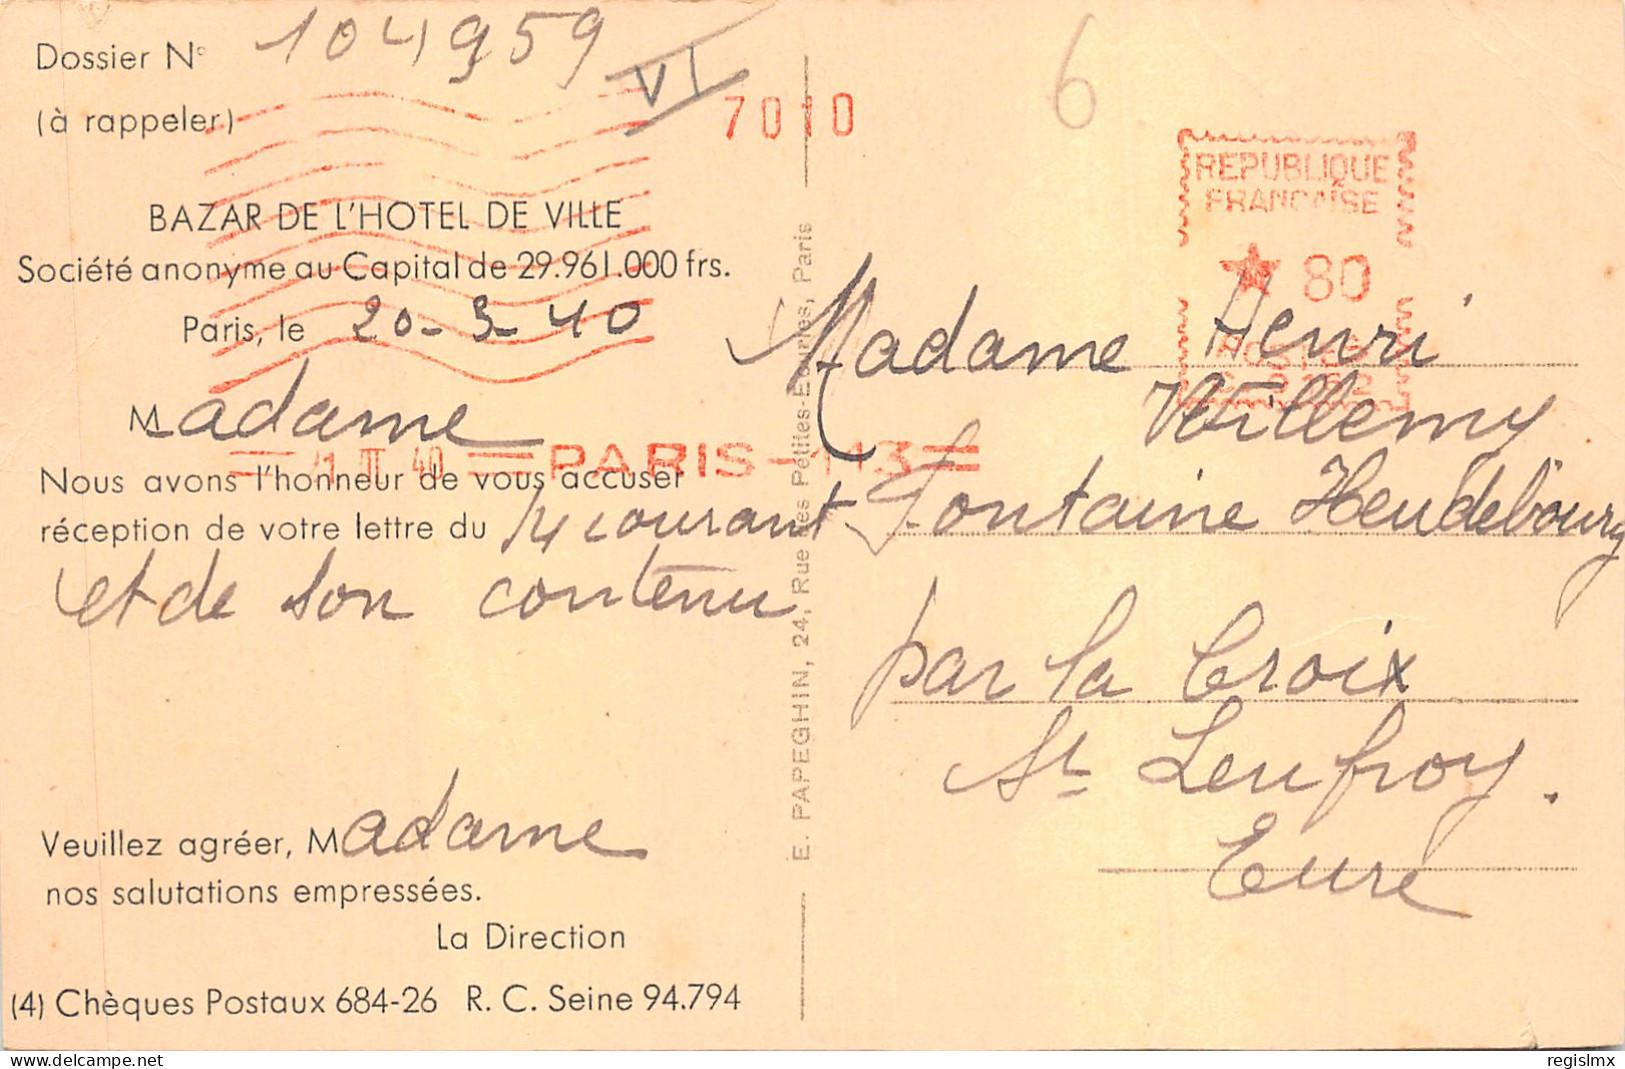 Dossier N° 104959
VI
(à rappeler)
7010
6
BAZAR DE L'HOTEL DE VILLE
Société anonyme au Capital de 29.961.000 frs.
Paris, le 20-3-40
Madame
Nous avons l'honneur de vous accuser
réception de votre lettre du 14 courant
et de son contenu
Veuillez agréer, Madame
nos salutations empressées.
La Direction
(4) Chèques Postaux 684-26 R. C. Seine 94.794
E. PAPEGHIN, 24, Rue des Petites-Ecuries, Paris
REPUBLIQUE
FRANCAISE
80
POSTES
21 III 40 PARIS - 113
Madame Henri
Willemy
Fontaine Heudebourg
par la Croix
St Leufroy.
Eure
delcampe.net
regislmx